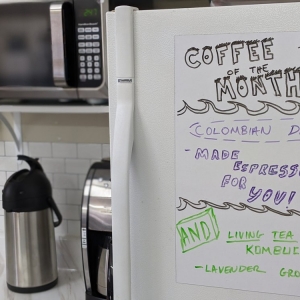 COFFEE
OF THE
MONTH
COLOMBIAN D
- MADE
ESPRESS
FOR
YOU!
AND!
LIVING TEA
KOMBUC
- LAVENDER GRO